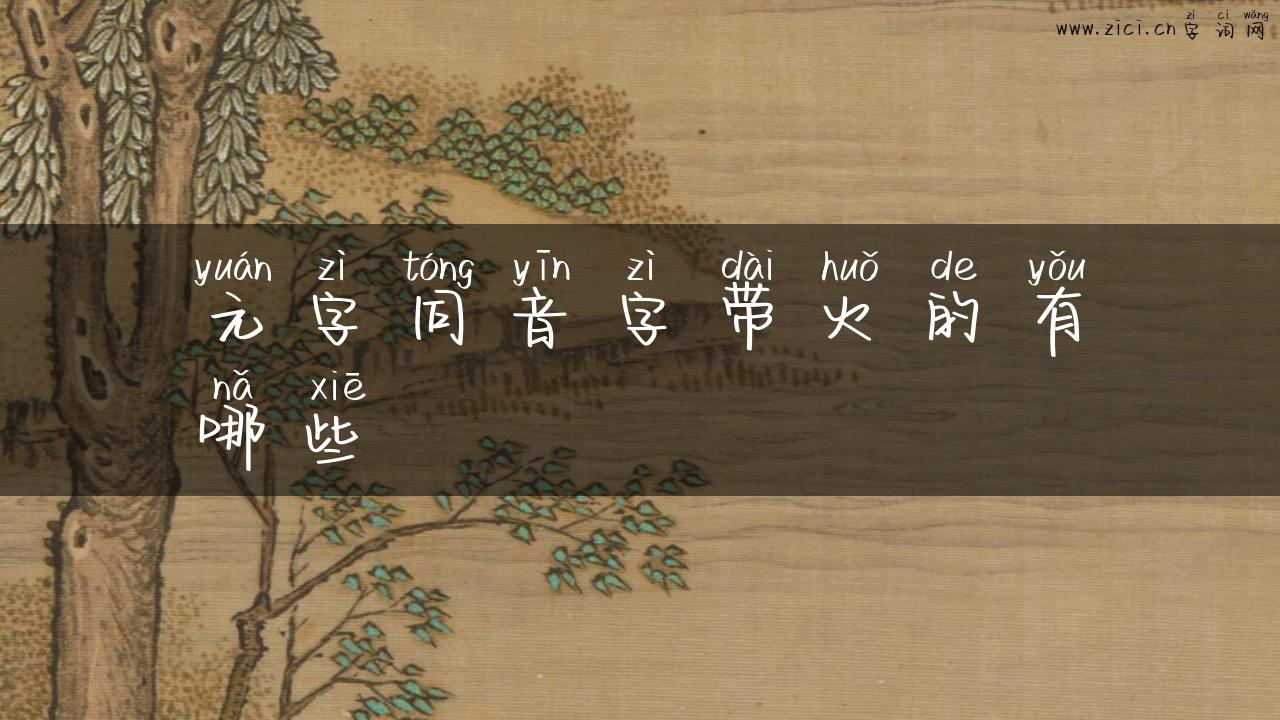 zì cí wǎng
www.zici.cn 字词网
yuán zì tóng yīn zì dài huǒ de yǒu
元字同音字带火的有
nǎ xiē
哪些